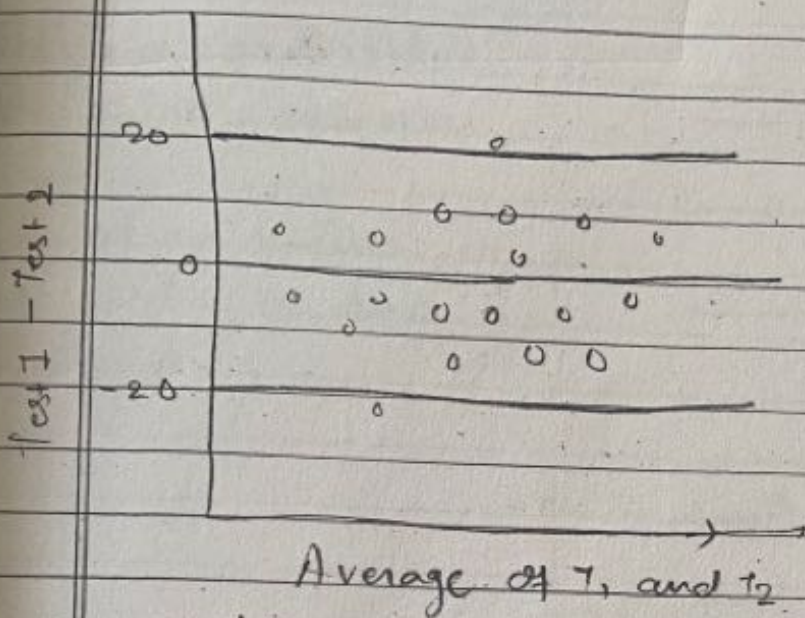 20
Test 1 - Test 2
0
-20
Average of T1 and T2